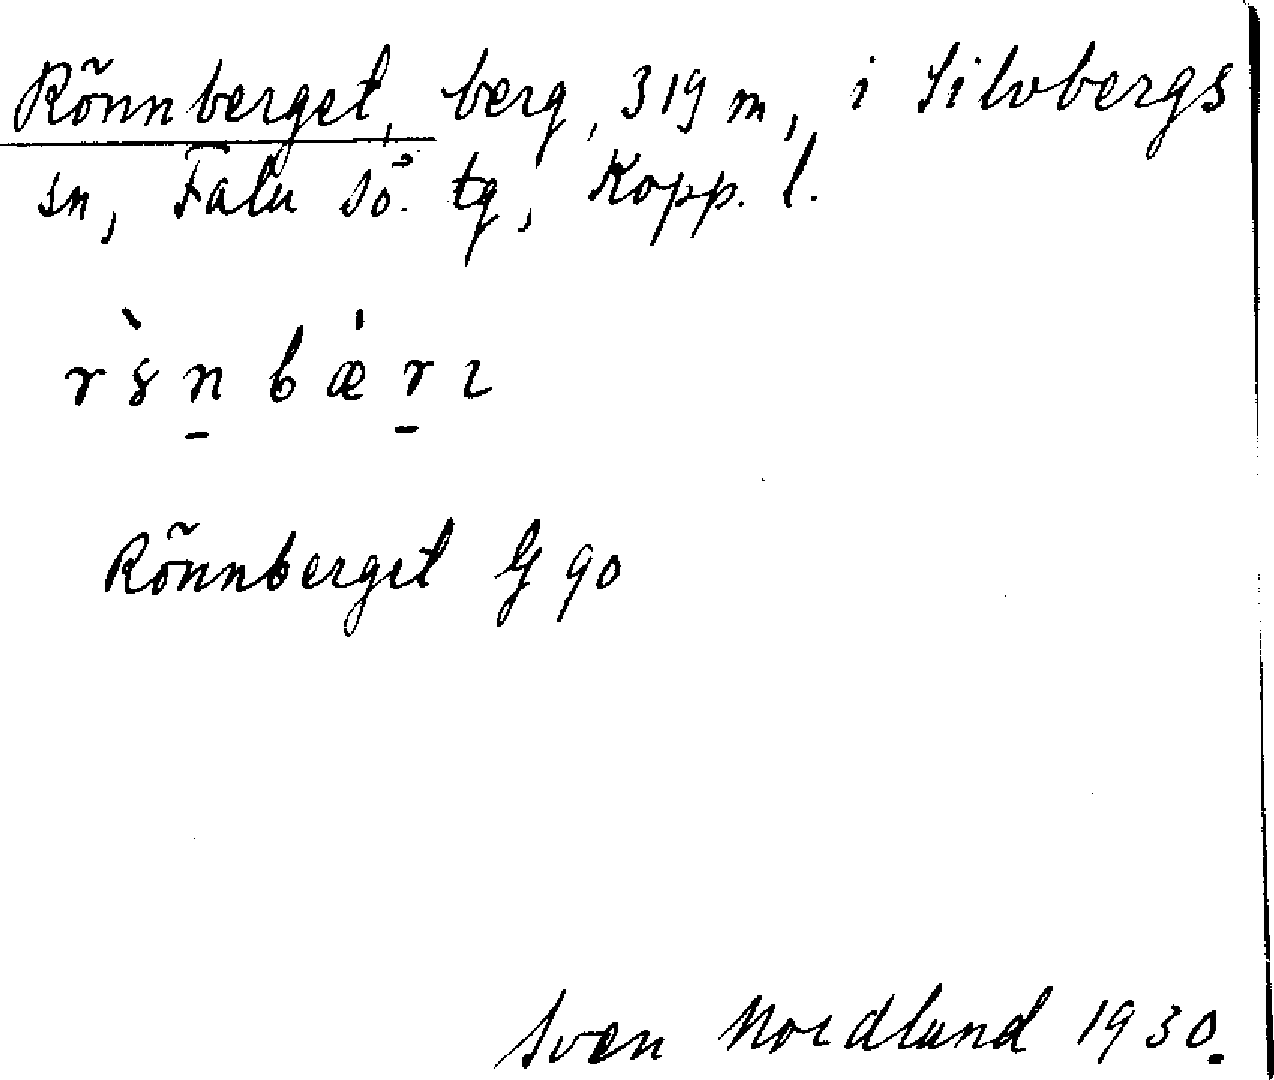 Rönnberget, berg, 319 m, i Silvbergs
sn, Falu sö. tg, Kopp. l.
Rönnberget G 90
Sven Nordlund 1930.